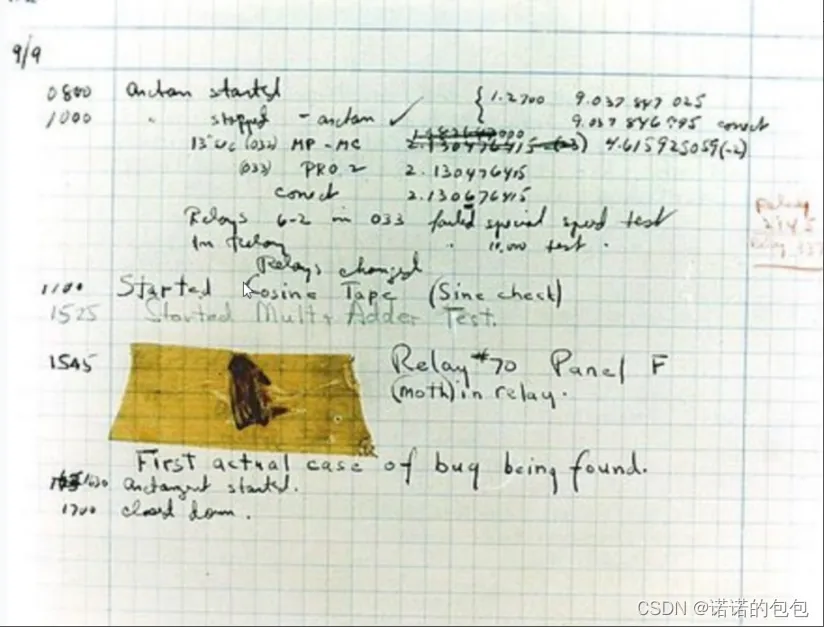 9/9
0800 arctan started { 1.2700 9.037 847 025
1000 " stopped - arctan ✓ 9.037 846 995 correct
13"uc (032) MP - MC 2.130476415 4.615925059(-2)
(033) PRO 2 2.130476415
correct 2.130676415
Relays 6-2 in 033 failed special speed test
In Relay " 10.000 test .
Relays changed
1100 Started Cosine Tape (Sine check)
1525 Started Mult + Adder Test.
1545 Relay #70 Panel F
(moth) in relay.
First actual case of bug being found.
1630 arctangent started.
1700 closed down.
Relay
2145
Relay 337
CSDN @诺诺的包包